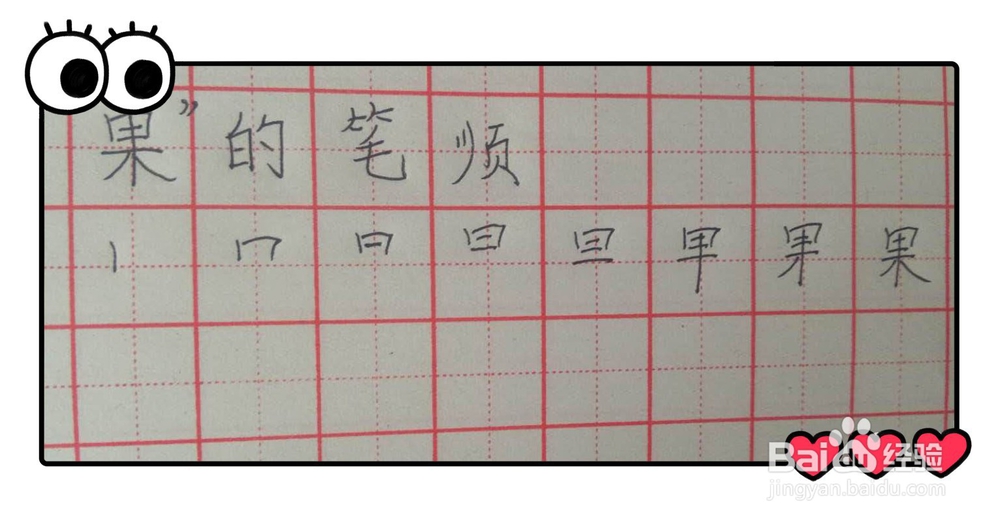 果”的笔顺
丨 冂 日 曰 旦 甲 果 果
Baidu 经验
jingyan.baidu.com